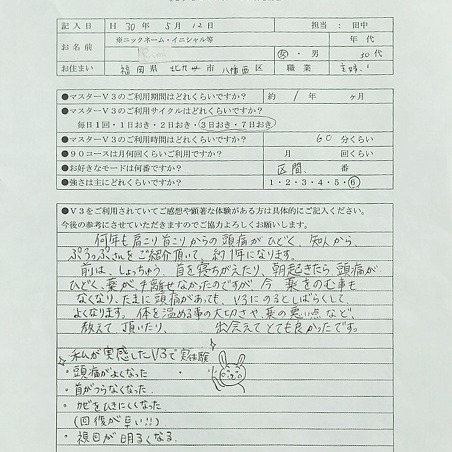 記入日 H 30年 5月 12日 担当：田中
お名前 ※ニックネーム・イニシャル等 女・男 年代 30代
お住まい 福岡県 北九州市 八幡西区 職業 主婦
●マスターV3のご利用期間はどれくらいですか？ 約 1年 ヶ月
●マスターV3のご利用サイクルはどれくらいですか？
毎日1回・1日おき・2日おき・3日おき・7日おき
●マスターV3のご利用時間はどれくらいですか？ 60 分くらい
●90コースは月何回くらいご利用ですか？ 月 回くらい
●お好きなモードは何番ですか？ 区間 番
●強さは主にどれくらいですか？ 1・2・3・4・5・6
●V3をご利用されていてご感想や顕著な体験がある方は具体的にご記入ください。
今後の参考にさせていただきますのでご協力よろしくお願いします。
何年も肩こり首こりからの頭痛がひどく、知人から
ぷろっぷさんをご紹介頂いて、約1年になります。
前は、しょっちゅう、首を寝ちがえたり、朝起きたら、頭痛が
ひどく、薬が手離せなかったのですが、今 薬をのむ事も
なくなり、たまに頭痛があっても、V3にのるとしばらくして
よくなります。体を温める事の大切さや、薬の悪い点など、
教えて頂いたり、 出会えてとても良かったです。
私が実感したV3で実体験
・頭痛がよくなった
・首がつらなくなった
・カゼをひきにくくなった
(回復が早い!!)
・視回が明るくなる